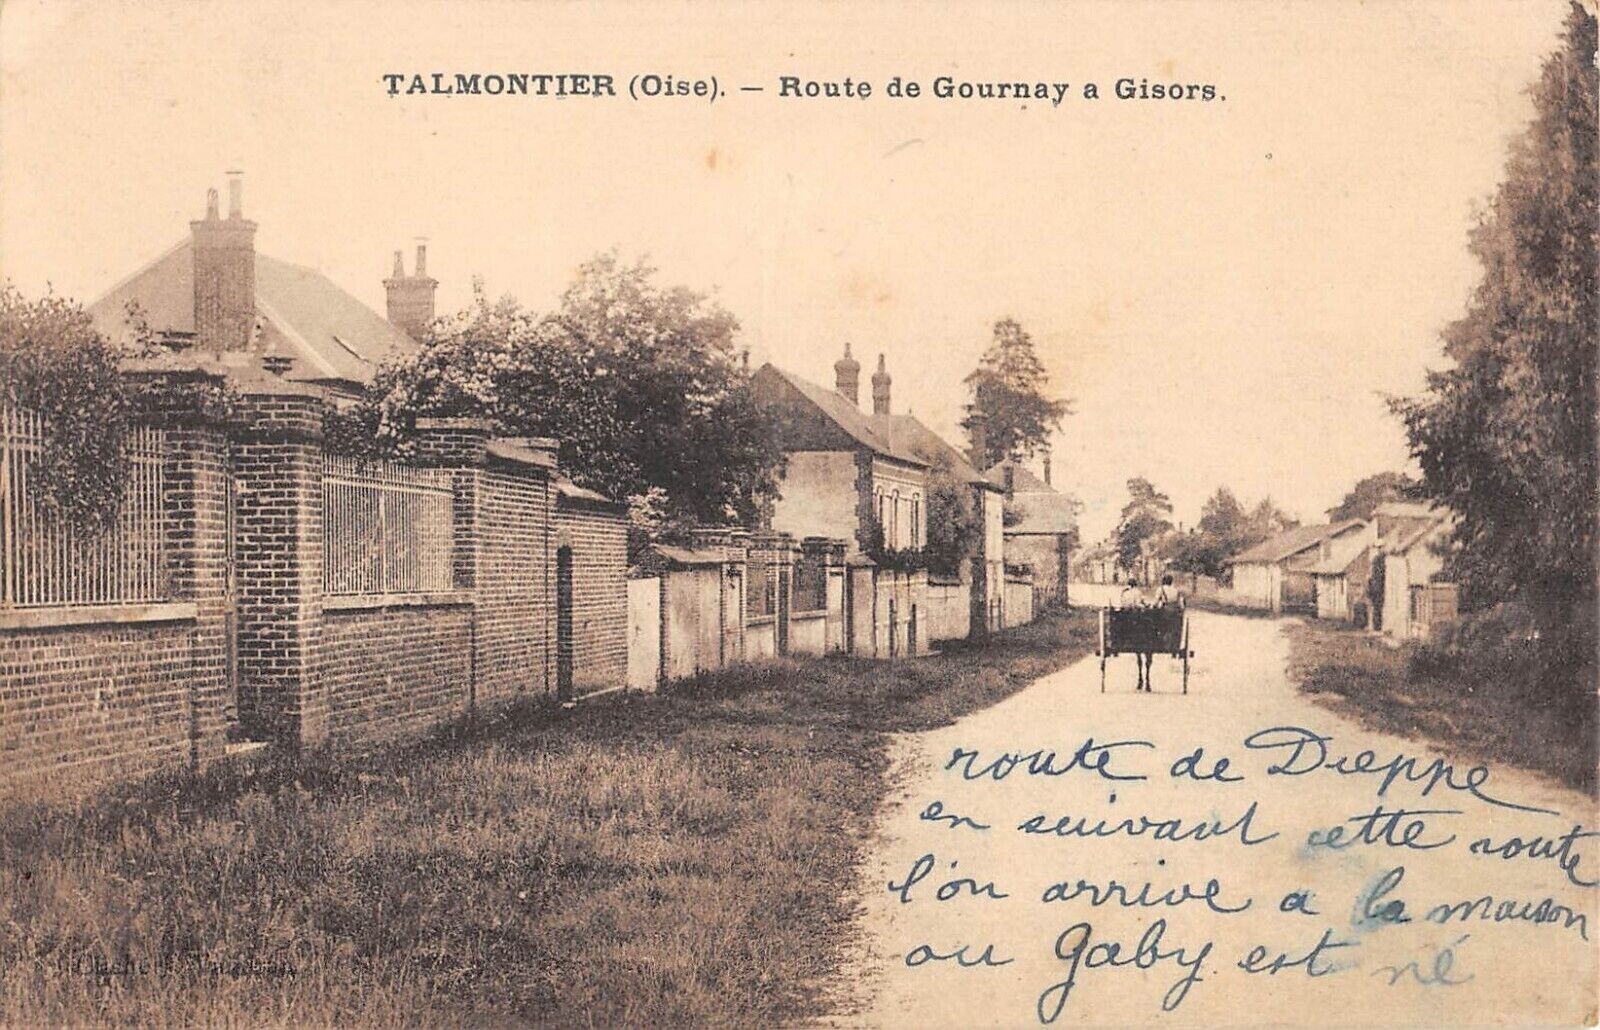 TALMONTIER (Oise). — Route de Gournay a Gisors.
route de Dieppe
en suivant cette route
l'on arrive a la maison
ou Gaby est né